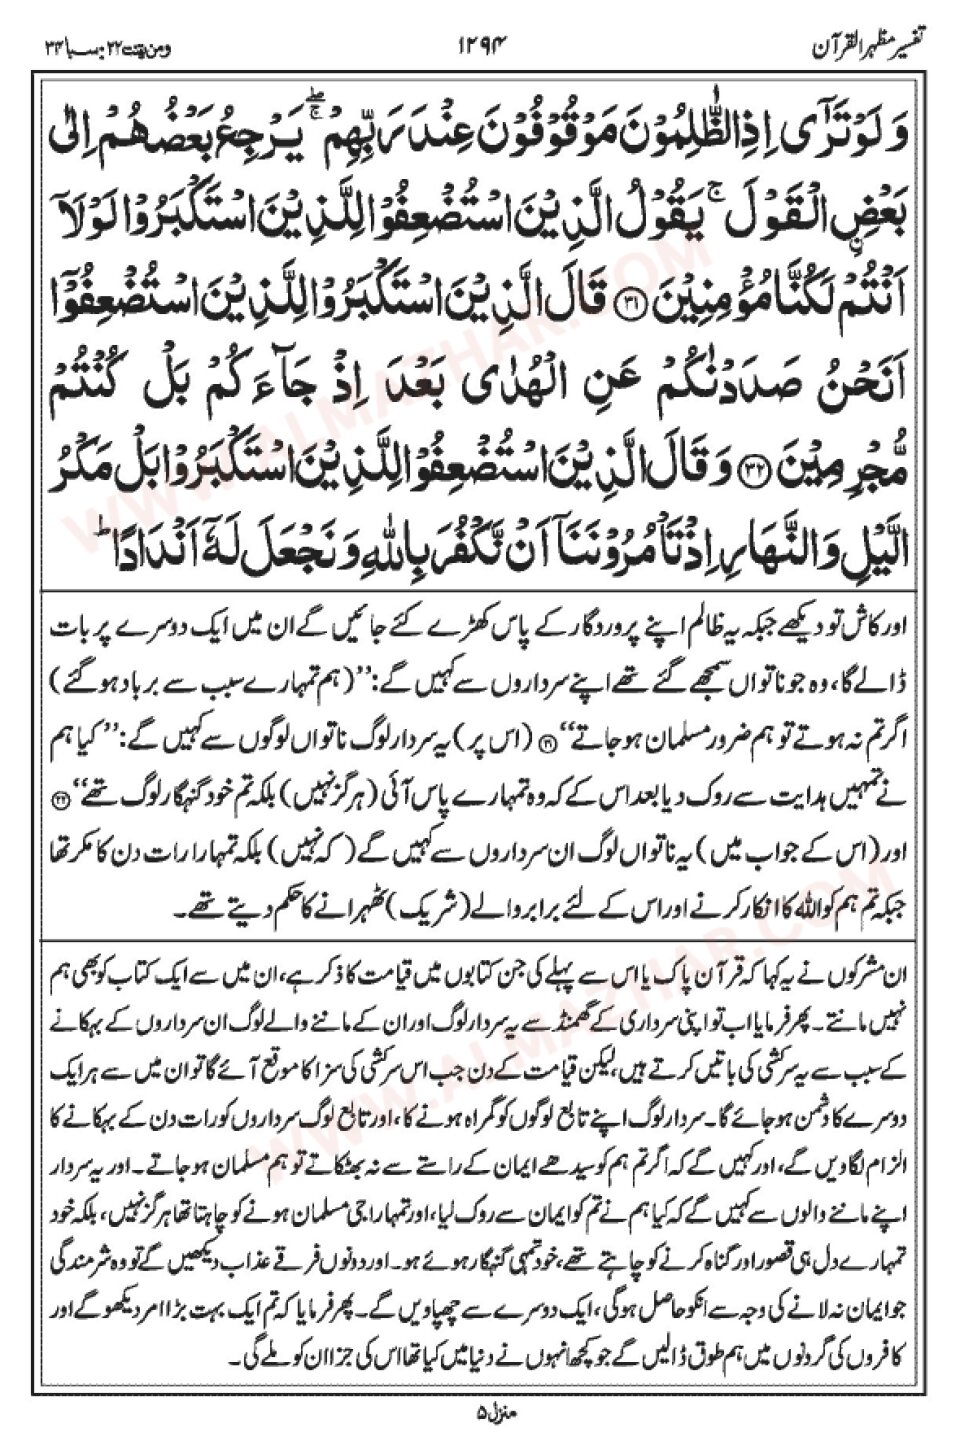 تفسیر مظہر القرآن
۱۲۹۴
ومن یقنت ۲۲: سبا ۳۴
وَلَوْ تَرٰٓى اِذِ الظّٰلِمُوْنَ مَوْقُوْفُوْنَ عِنْدَ رَبِّهِمْ ۚۖ يَرْجِعُ بَعْضُهُمْ اِلٰى
بَعْضِ ۨالْقَوْلَ ۚ يَقُوْلُ الَّذِيْنَ اسْتُضْعِفُوْا لِلَّذِيْنَ اسْتَكْبَرُوْا لَوْلَآ
اَنْتُمْ لَكُنَّا مُؤْمِنِيْنَ ﴿۳۱﴾ قَالَ الَّذِيْنَ اسْتَكْبَرُوْا لِلَّذِيْنَ اسْتُضْعِفُوْٓا
اَنَحْنُ صَدَدْنٰكُمْ عَنِ الْهُدٰى بَعْدَ اِذْ جَآءَكُمْ بَلْ كُنْتُمْ
مُّجْرِمِيْنَ ﴿۳۲﴾ وَقَالَ الَّذِيْنَ اسْتُضْعِفُوْا لِلَّذِيْنَ اسْتَكْبَرُوْا بَلْ مَكْرُ
الَّيْلِ وَالنَّهَارِ اِذْ تَاْمُرُوْنَنَآ اَنْ نَّكْفُرَ بِاللّٰهِ وَنَجْعَلَ لَهٗٓ اَنْدَادًا ؕ
اور کاش تو دیکھے جبکہ یہ ظالم اپنے پروردگار کے پاس کھڑے کئے جائیں گے ان میں ایک دوسرے پر بات
ڈالے گا، وہ جو ناتواں سمجھے گئے تھے اپنے سرداروں سے کہیں گے: ’’(ہم تمہارے سبب سے برباد ہوگئے)
اگر تم نہ ہوتے تو ہم ضرور مسلمان ہو جاتے‘‘ ﴿۳۱﴾ (اس پر) یہ سردار لوگ ناتواں لوگوں سے کہیں گے: ’’کیا ہم
نے تمہیں ہدایت سے روک دیا بعد اس کے کہ وہ تمہارے پاس آئی (ہرگز نہیں) بلکہ تم خود گنہگار لوگ تھے‘‘ ﴿۳۲﴾
اور (اس کے جواب میں) یہ ناتواں لوگ ان سرداروں سے کہیں گے (کہ نہیں) بلکہ تمہارا رات دن کا مکر تھا
جبکہ تم ہم کو اللہ کا انکار کرنے اور اس کے لئے برابر والے (شریک) ٹھہرانے کا حکم دیتے تھے۔
ان مشرکوں نے یہ کہا کہ قرآن پاک یا اس سے پہلے کی جن کتابوں میں قیامت کا ذکر ہے، ان میں سے ایک کتاب کو بھی ہم
نہیں مانتے۔ پھر فرمایا اب تو اپنی سرداری کے گھمنڈ سے یہ سردار لوگ اور ان کے ماننے والے لوگ ان سرداروں کے بہکانے
کے سبب سے یہ سرکشی کی باتیں کرتے ہیں، لیکن قیامت کے دن جب اس سرکشی کی سزا کا موقع آئے گا تو ان میں سے ہر ایک
دوسرے کا دشمن ہو جائے گا۔ سردار لوگ اپنے تابع لوگوں کو گمراہ ہونے کا، اور تابع لوگ سرداروں کو رات دن کے بہکانے کا
الزام لگاویں گے، اور کہیں گے کہ اگر تم ہم کو سیدھے ایمان کے راستے سے نہ بھٹکاتے تو ہم مسلمان ہو جاتے۔ اور یہ سردار
اپنے ماننے والوں سے کہیں گے کہ کیا ہم نے تم کو ایمان سے روک لیا، اور تمہارا جی مسلمان ہونے کو چاہتا تھا ہرگز نہیں، بلکہ خود
تمہارے دل ہی قصور اور گناہ کرنے کو چاہتے تھے، خود تمہی گنہگار ہوئے ہو۔ اور دونوں فرقے عذاب دیکھیں گے تو وہ شرمندگی
جو ایمان نہ لانے کی وجہ سے انکو حاصل ہوگی، ایک دوسرے سے چھپاویں گے۔ پھر فرمایا کہ تم ایک بہت بڑا امر دیکھو گے اور
کافروں کی گردنوں میں ہم طوق ڈالیں گے جو کچھ انہوں نے دنیا میں کیا تھا اس کی جزا ان کو ملے گی۔
منزل ۵
WWW.ALMAZHAR.COM
WWW.ALMAZHAR.COM